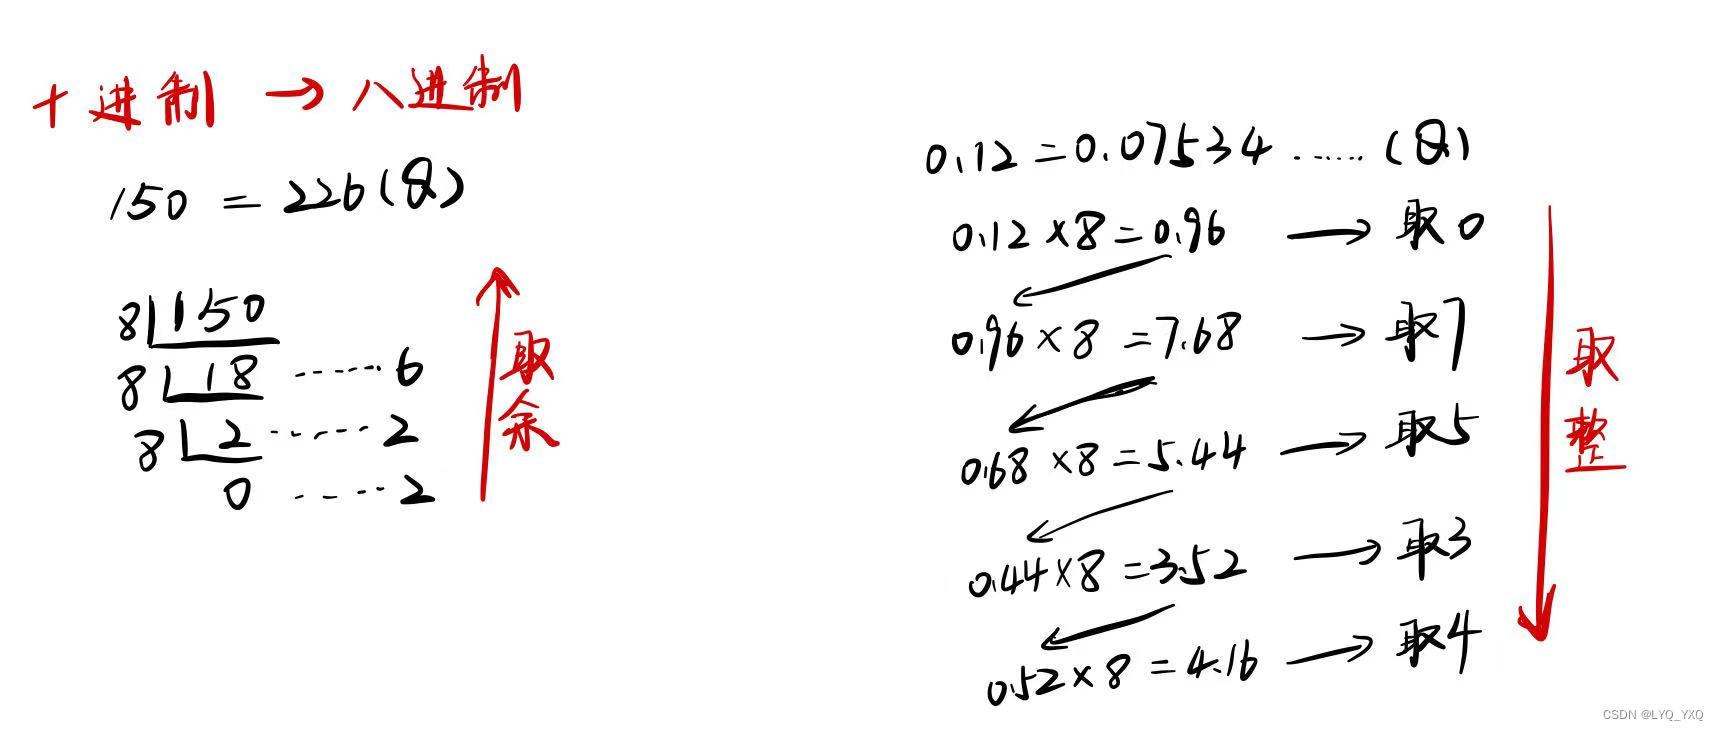 十进制 → 八进制
150 = 226(Q)
8 150
8 18 ······ 6
8 2 ······ 2
0 ······ 2
取余
0.12 = 0.07534 ······ (Q)
0.12 × 8 = 0.96 → 取0
0.96 × 8 = 7.68 → 取7
0.68 × 8 = 5.44 → 取5
0.44 × 8 = 3.52 → 取3
0.52 × 8 = 4.16 → 取4
取整
CSDN @LYQ_YXQ